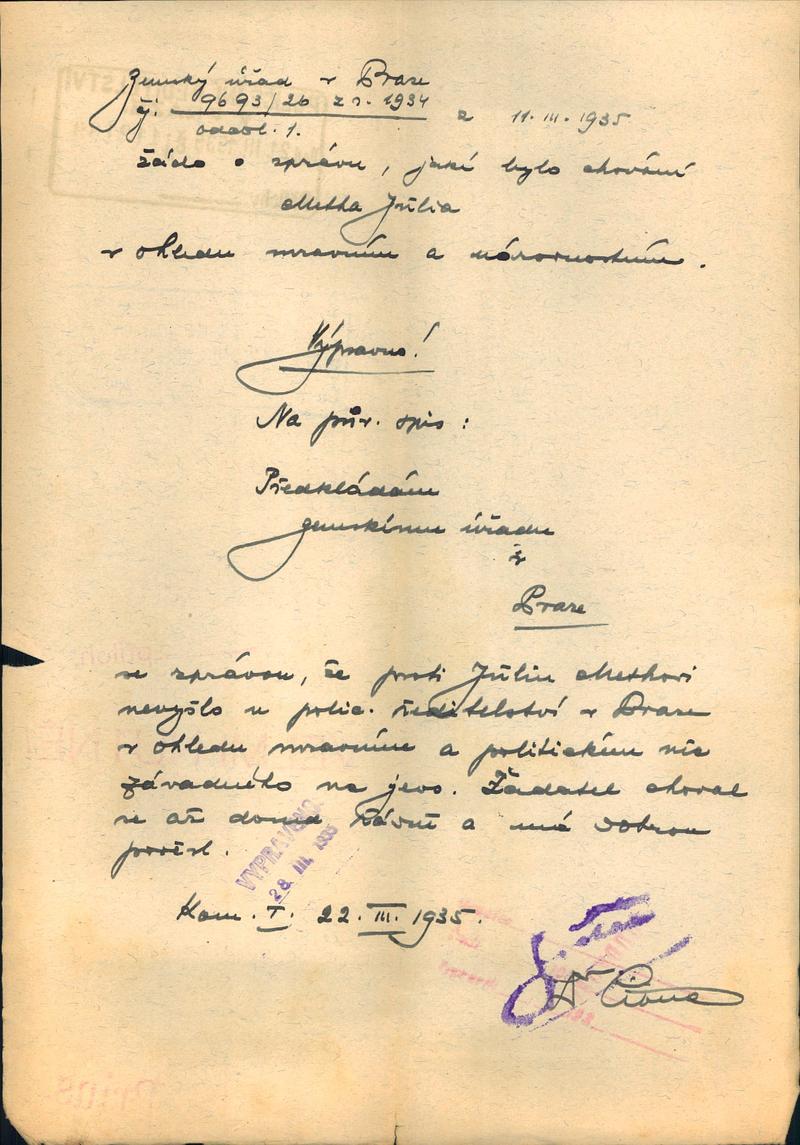 Zemský úřad v Praze
čj: 9693/26 z r. 1934
odděl. 1. z 11. III. 1935
žádá o zprávu, jaké bylo chování
Metha Júlia
v ohledu mravním a národnostním.
Výpravno!
Na pův. opis:
Předkládám
zemskému úřadu
v
Praze
se zprávou, že proti Júliu
nevyšlo u polic. ředitelství v Praze
v ohledu mravním a politickém nic
závadného na jevo. Žadatel choval
se až doma řádně a má dobrou
pověst.
VYPRAVENO
28. III. 1935
Kom. I. 22. III. 1935.
Dr